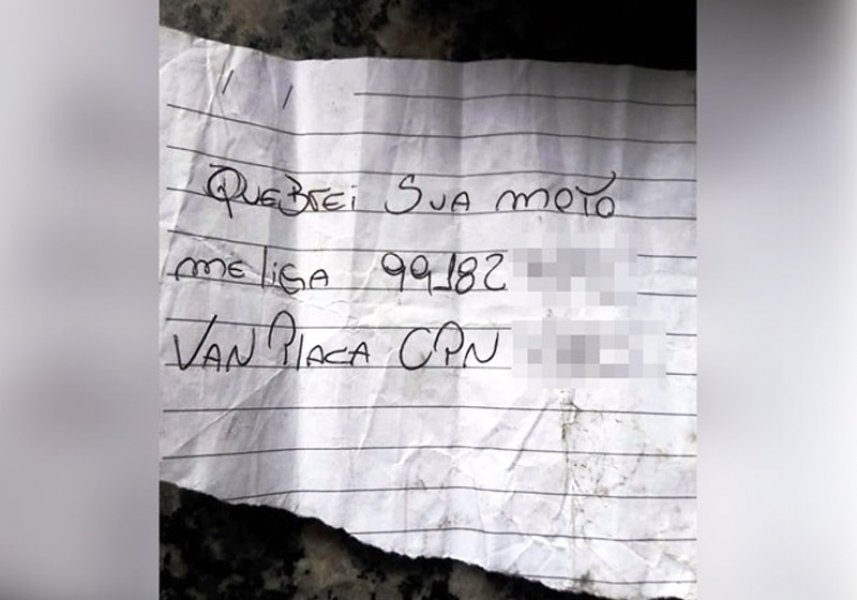 Quebrei sua moto
me liga 99182
Van Placa CPN